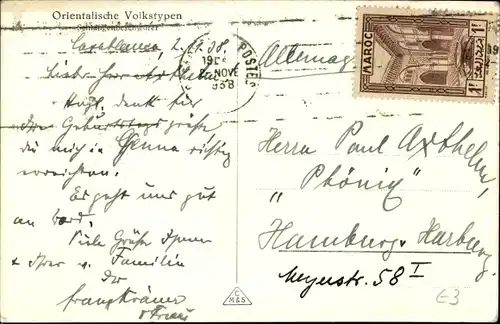 Orientalische Volkstypen
Schlangenbeschwörer
Casablanca, 2. 11. 38.
Lieber Herr Axthelm
Hzgl. Dank für
Ihre Geburtstagsgrüße
die mich in Genua richtig
erreichten.
Es geht uns gut
an Bord.
Viele Grüße Ihnen
& Ihrer w. Familie
Ihr
Frau
POSTES
NOVE
Allemagne
MAROC
1F
1F
Herrn Paul Axthelm,
"Phönix"
Hamburg-Harburg
Meyerstr. 58 I
C
M&S
E3